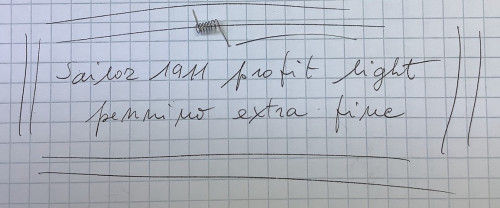 Sailor 1911 profit light
pennino extra fine